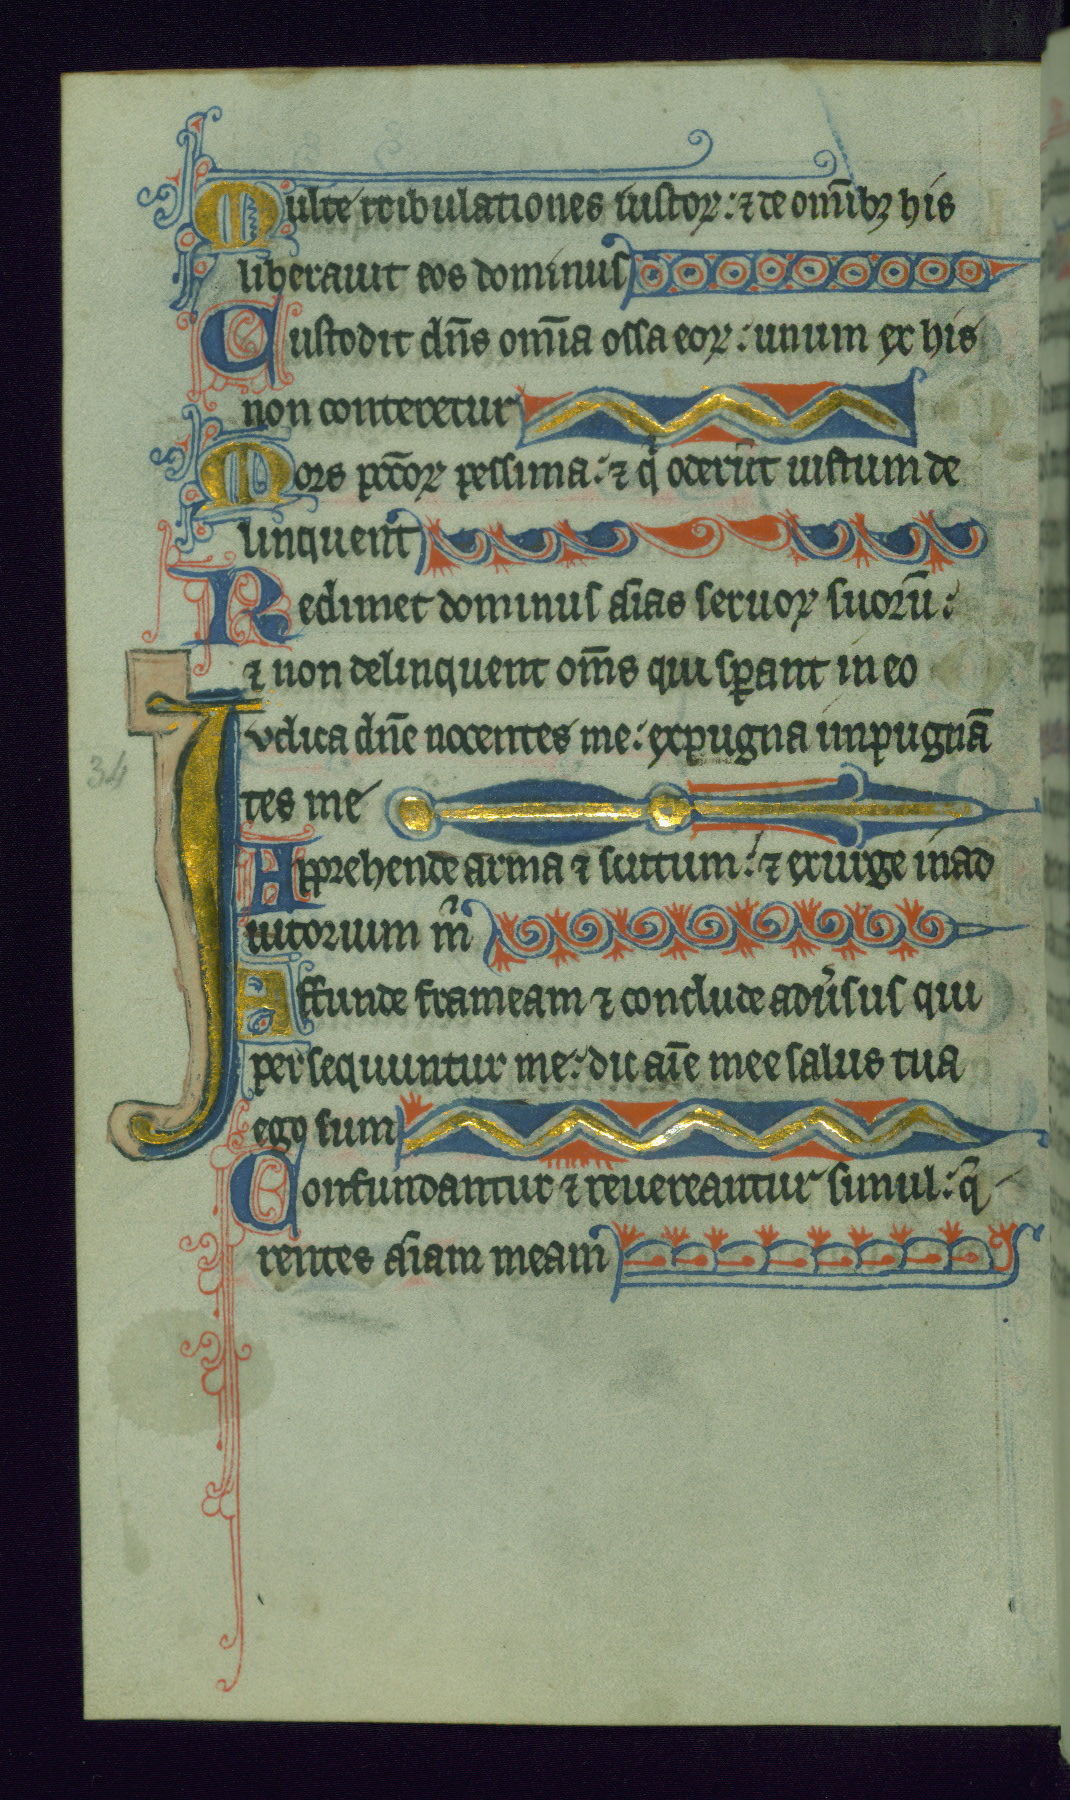 Multe tribulationes iustoꝝ: ⁊ de om̅ibꝫ his
liberauit eos dominus
Custodit dn̅s om̅ia ossa eoꝝ: unum ex his
non conteretur
Mors pc̅coꝝ pessima: ⁊ q̇ oderu̅t iustum de
linquent
Redimet dominus a̅ias seruoꝝ suoru̅:
⁊ non delinquent om̅s qui sꝑant in eo
Iudica dn̅e nocentes me: expugna inpugna̅
34
tes me
Apprehende arma ⁊ scutum: ⁊ exurge in ad
iutorium m̅
Effunde frameam ⁊ conclude adu̅sus qui
persequuntur me: dic ai̅e mee salus tua
ego sum
Confundantur ⁊ reuereantur simul: q̅
rentes a̅iam meam